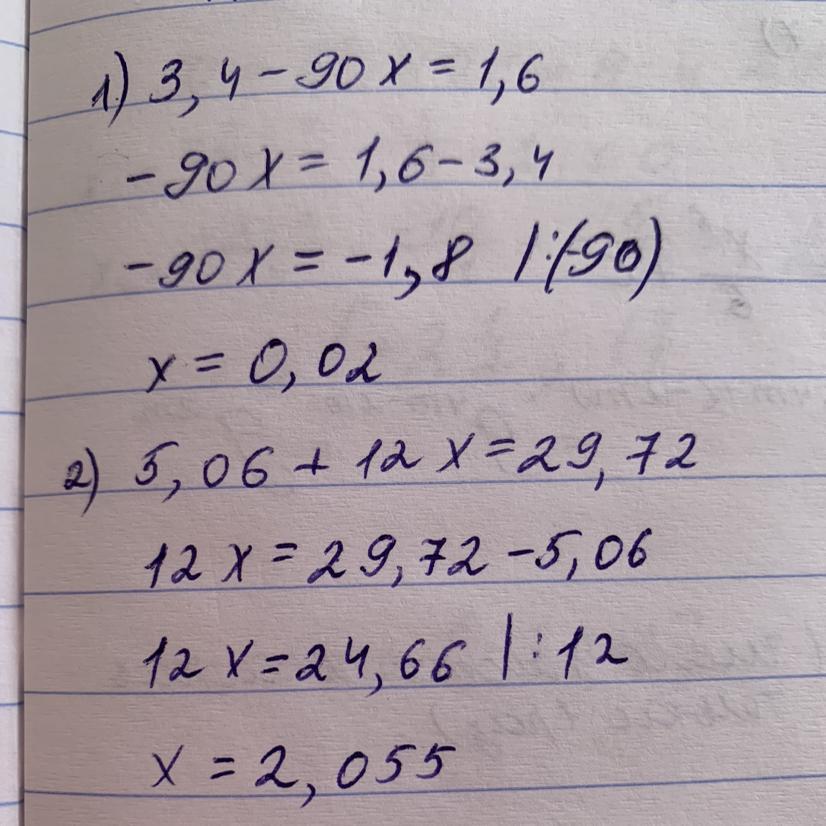 1) 3,4-90x=1,6
-90x=1,6-3,4
-90x=-1,8 |:(-90)
x=0,02
2) 5,06+12x=29,72
12x=29,72-5,06
12x=24,66 |:12
x=2,055